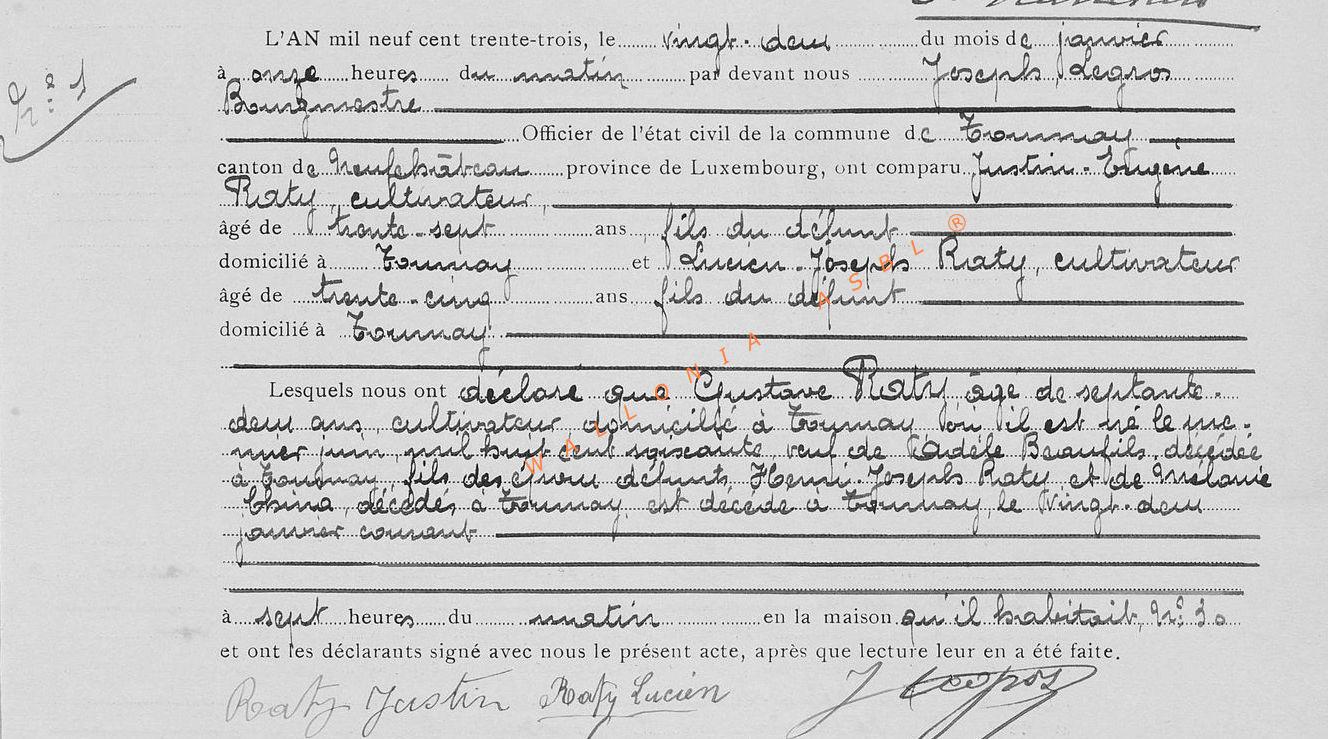 N° 1
L'AN mil neuf cent trente-trois, le vingt-deux du mois de janvier
à onze heures du matin par devant nous Joseph Legros
Bourgmestre
Officier de l'état civil de la commune de Tournay
canton de Neufchâteau province de Luxembourg, ont comparu Justin-Eugène
Raty, cultivateur,
âgé de trente-sept ans, fils du défunt
domicilié à Tournay et Lucien-Joseph Raty, cultivateur
âgé de trente-cinq ans fils du défunt
domicilié à Tournay
Lesquels nous ont déclaré que Gustave Raty âgé de septante-
deux ans, cultivateur, domicilié à Tournay où il est né le pre-
mier juin mil huit cent soixante, veuf de Adèle Beaufils, décédée
à Tournay, fils des époux défunts Henri-Joseph Raty et de Mélanie
China, décédés à Tournay, est décédé à Tournay, le vingt-deux
janvier courant
à sept heures du matin en la maison qu'il habitait, N° 30
et ont les déclarants signé avec nous le présent acte, après que lecture leur en a été faite.
Raty Justin Raty Lucien J Legros
WALLONIA ASBL ®